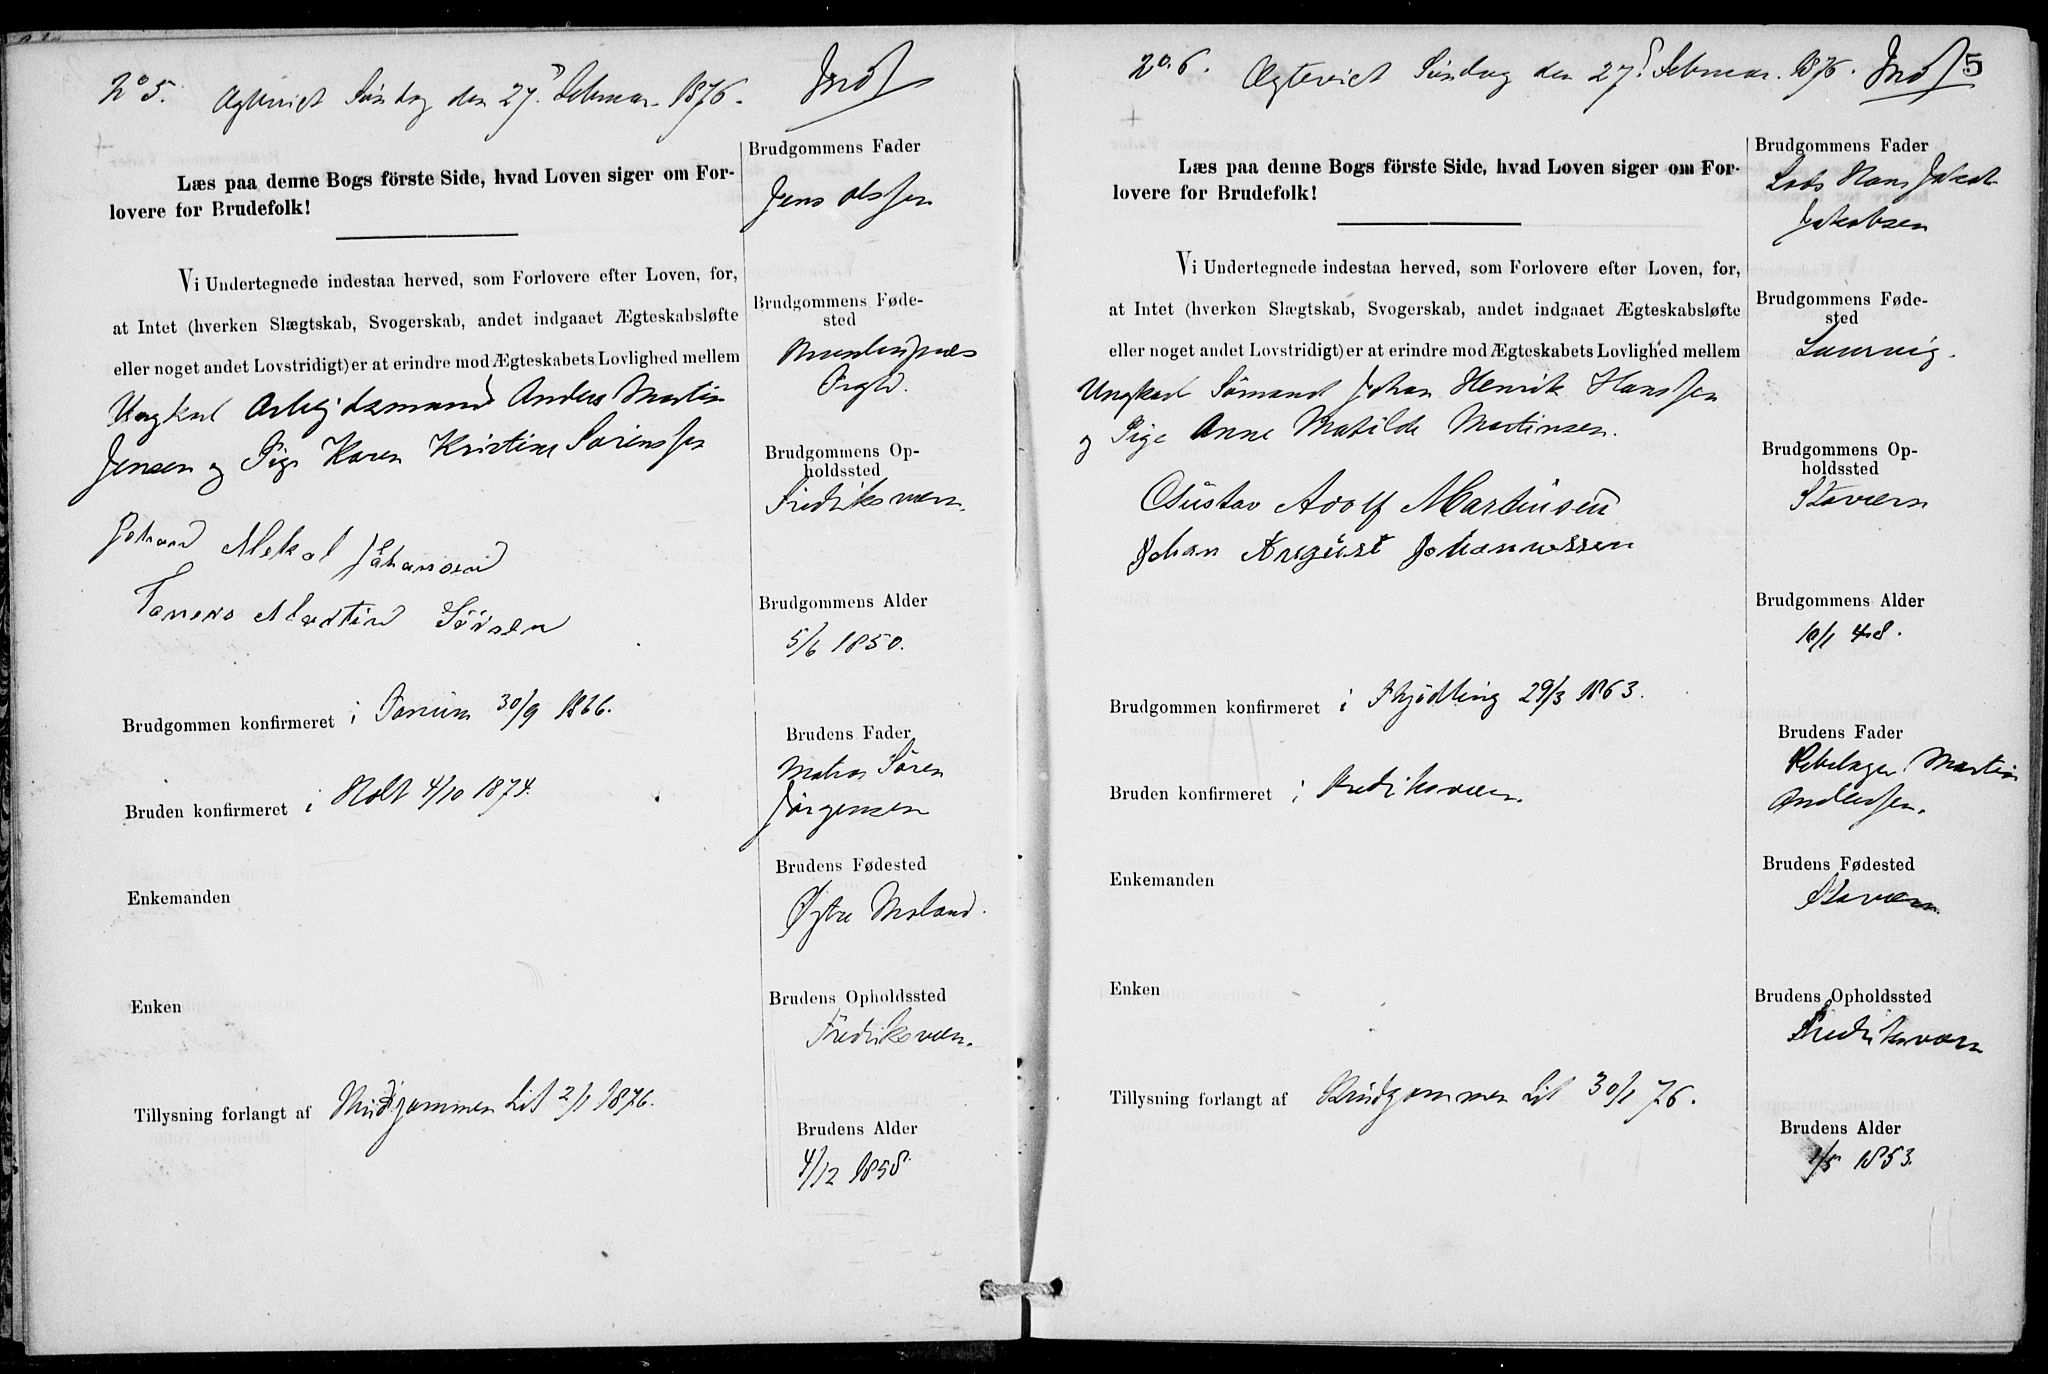 No 5. Ægteviet Søndag den 27de Februar 1876. Indf
Læs paa denne Bogs förste Side, hvad Loven siger om For-
lovere for Brudefolk!
Vi Undertegnede indestaa herved, som Forlovere efter Loven, for,
at Intet (hverken Slægtskab, Svogerskab, andet indgaaet Ægteskabsløfte
eller noget andet Lovstridigt) er at erindre mod Ægteskabets Lovlighed mellem
Ungkarl Arbejdsmand Anders Martin
Jensen og Pige Karen Kristine Sørenssen
Johan Mekal Johansen
Martin
Brudgommen konfirmeret i 30/9 1866.
Bruden konfirmeret i Holt 4/10 1874.
Enkemanden
Enken
Tillysning forlangt af Brudgommen Lit 2/1 1876.
Brudgommens Fader
Jens Olssen
Brudgommens Føde-
sted
Brudgommens Op-
holdssted
Fredriksværn.
Brudgommens Alder
5/6 1850.
Brudens Fader
Matros Sören
Jörgensen
Brudens Fødested
Østre Moland.
Brudens Opholdssted
Fredriksværn.
Brudens Alder
4/12 1858.
No. 6. Ægteviet Søndag den 27de Februar. 1876. Indf 5
Læs paa denne Bogs förste Side, hvad Loven siger om For-
lovere for Brudefolk!
Vi Undertegnede indestaa herved, som Forlovere efter Loven, for,
at Intet (hverken Slægtskab, Svogerskab, andet indgaaet Ægteskabsløfte
eller noget andet Lovstridigt) er at erindre mod Ægteskabets Lovlighed mellem
Ungkarl Sömand Johan Henrik Hanssen
og Pige Anne Matilde Martinsen.
Gustav Adolf Martinsen
Johan August Johannessen
Brudgommen konfirmeret i Tjødling 29/3 1863.
Bruden konfirmeret i Fredriksværn.
Enkemanden
Enken
Tillysning forlangt af Brudgommen Lit 30/1 76.
Brudgommens Fader
Lods Hans Jakob
Jakobsen
Brudgommens Føde-
sted
Laurvig.
Brudgommens Op-
holdssted
Staværn
Brudgommens Alder
10/1 48.
Brudens Fader
Martin
Anderssen.
Brudens Fødested
Staværn.
Brudens Opholdssted
Fredriksværn
Brudens Alder
1/5 1853.